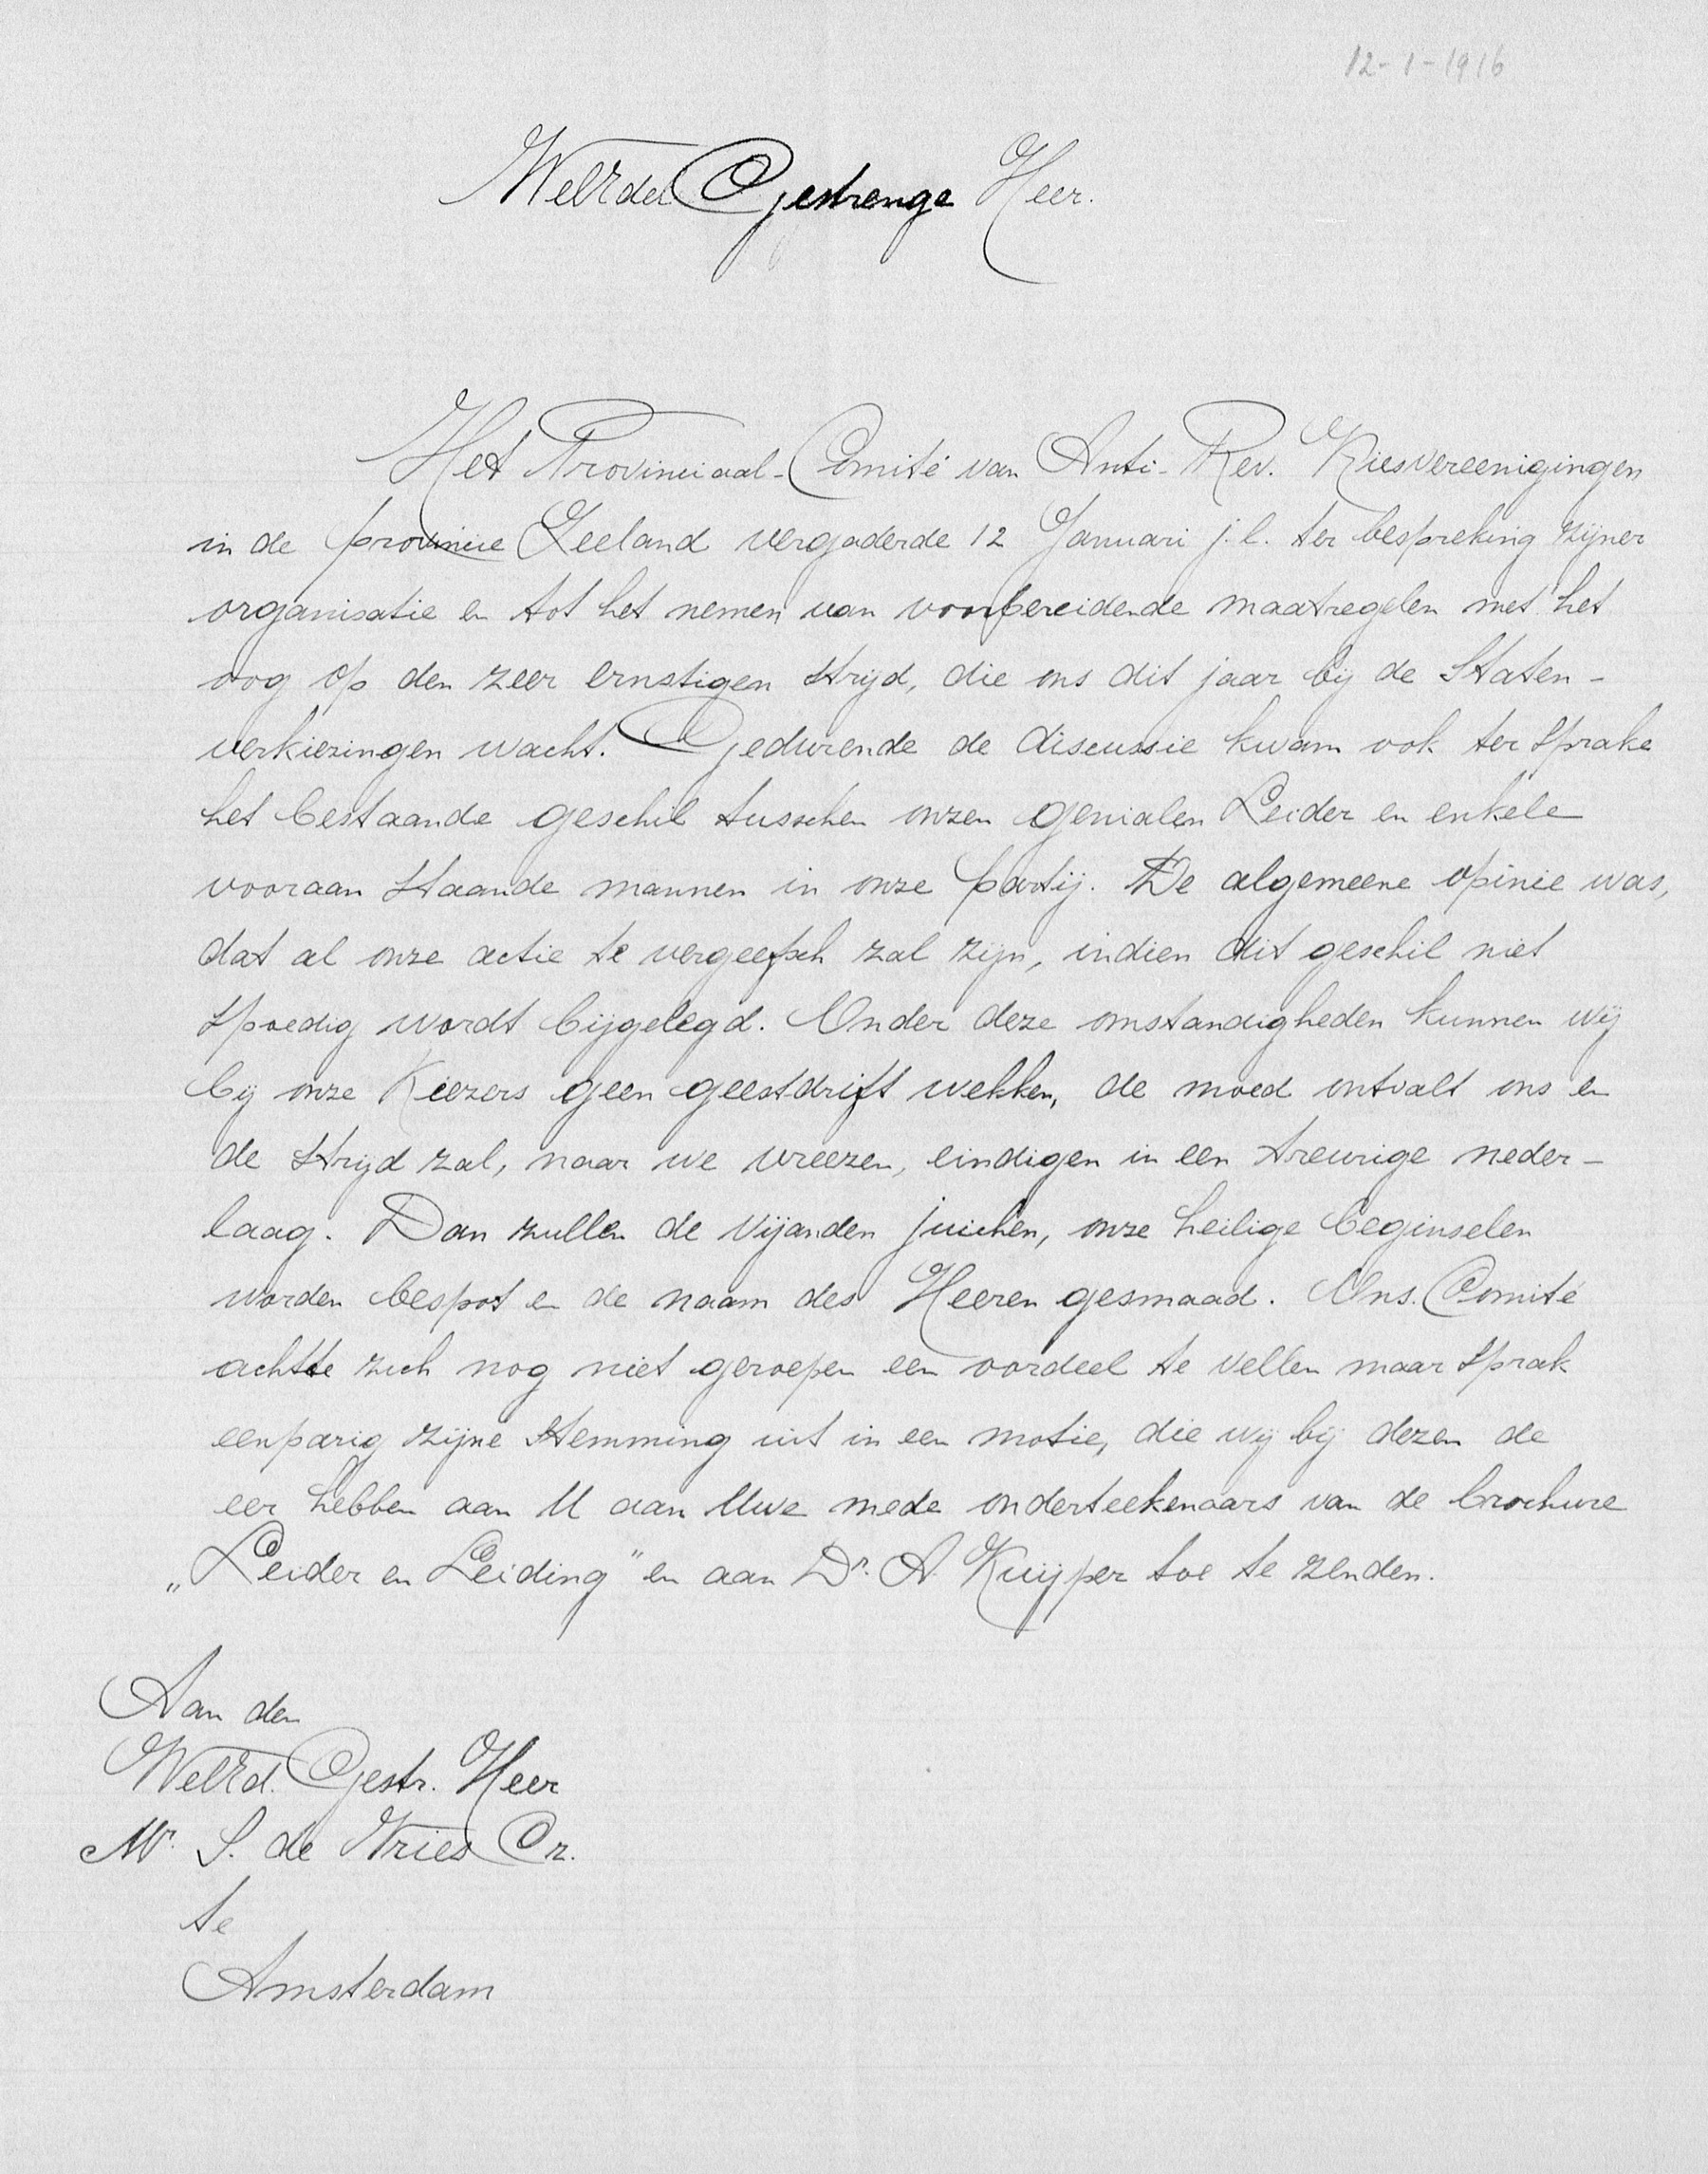 12-1-1916
WelEdel Gestrenge Heer.
Het Provinciaal-Comité van Anti-Rev. Kiesvereenigingen
in de provincie Zeeland vergaderde 12 Januari j.l. ter bespreking zijner
organisatie en tot het nemen van voorbereidende maatregelen met het
oog op den zeer ernstigen strijd, die ons dit jaar bij de Staten-
verkiezingen wacht. Gedurende de discussie kwam ook ter sprake
het bestaande geschil tusschen onzen genialen Leider en enkele
vooraan staande mannen in onze partij. De algemeene opinie was,
dat al onze actie te vergeefsch zal zijn, indien dit geschil niet
spoedig wordt bijgelegd. Onder deze omstandigheden kunnen wij
bij onze Kiezers geen geestdrift wekken, de moed ontvalt ons en
de strijd zal, naar we vreezen, eindigen in een treurige neder-
laag. Dan zullen de vijanden juichen, onze heilige beginselen
worden bespot en de naam des Heeren gesmaad. Ons Comité
achtte zich nog niet geroepen een oordeel te vellen maar sprak
eenparig zijne stemming uit in een motie, die wij bij dezen de
eer hebben aan U aan Uwe mede onderteekenaars van de brochure
„Leider en Leiding" en aan Dr. A. Kuijper toe te zenden.
Aan den
WelEd. Gestr. Heer
Mr. S. de Vries Cz.
te
Amsterdam